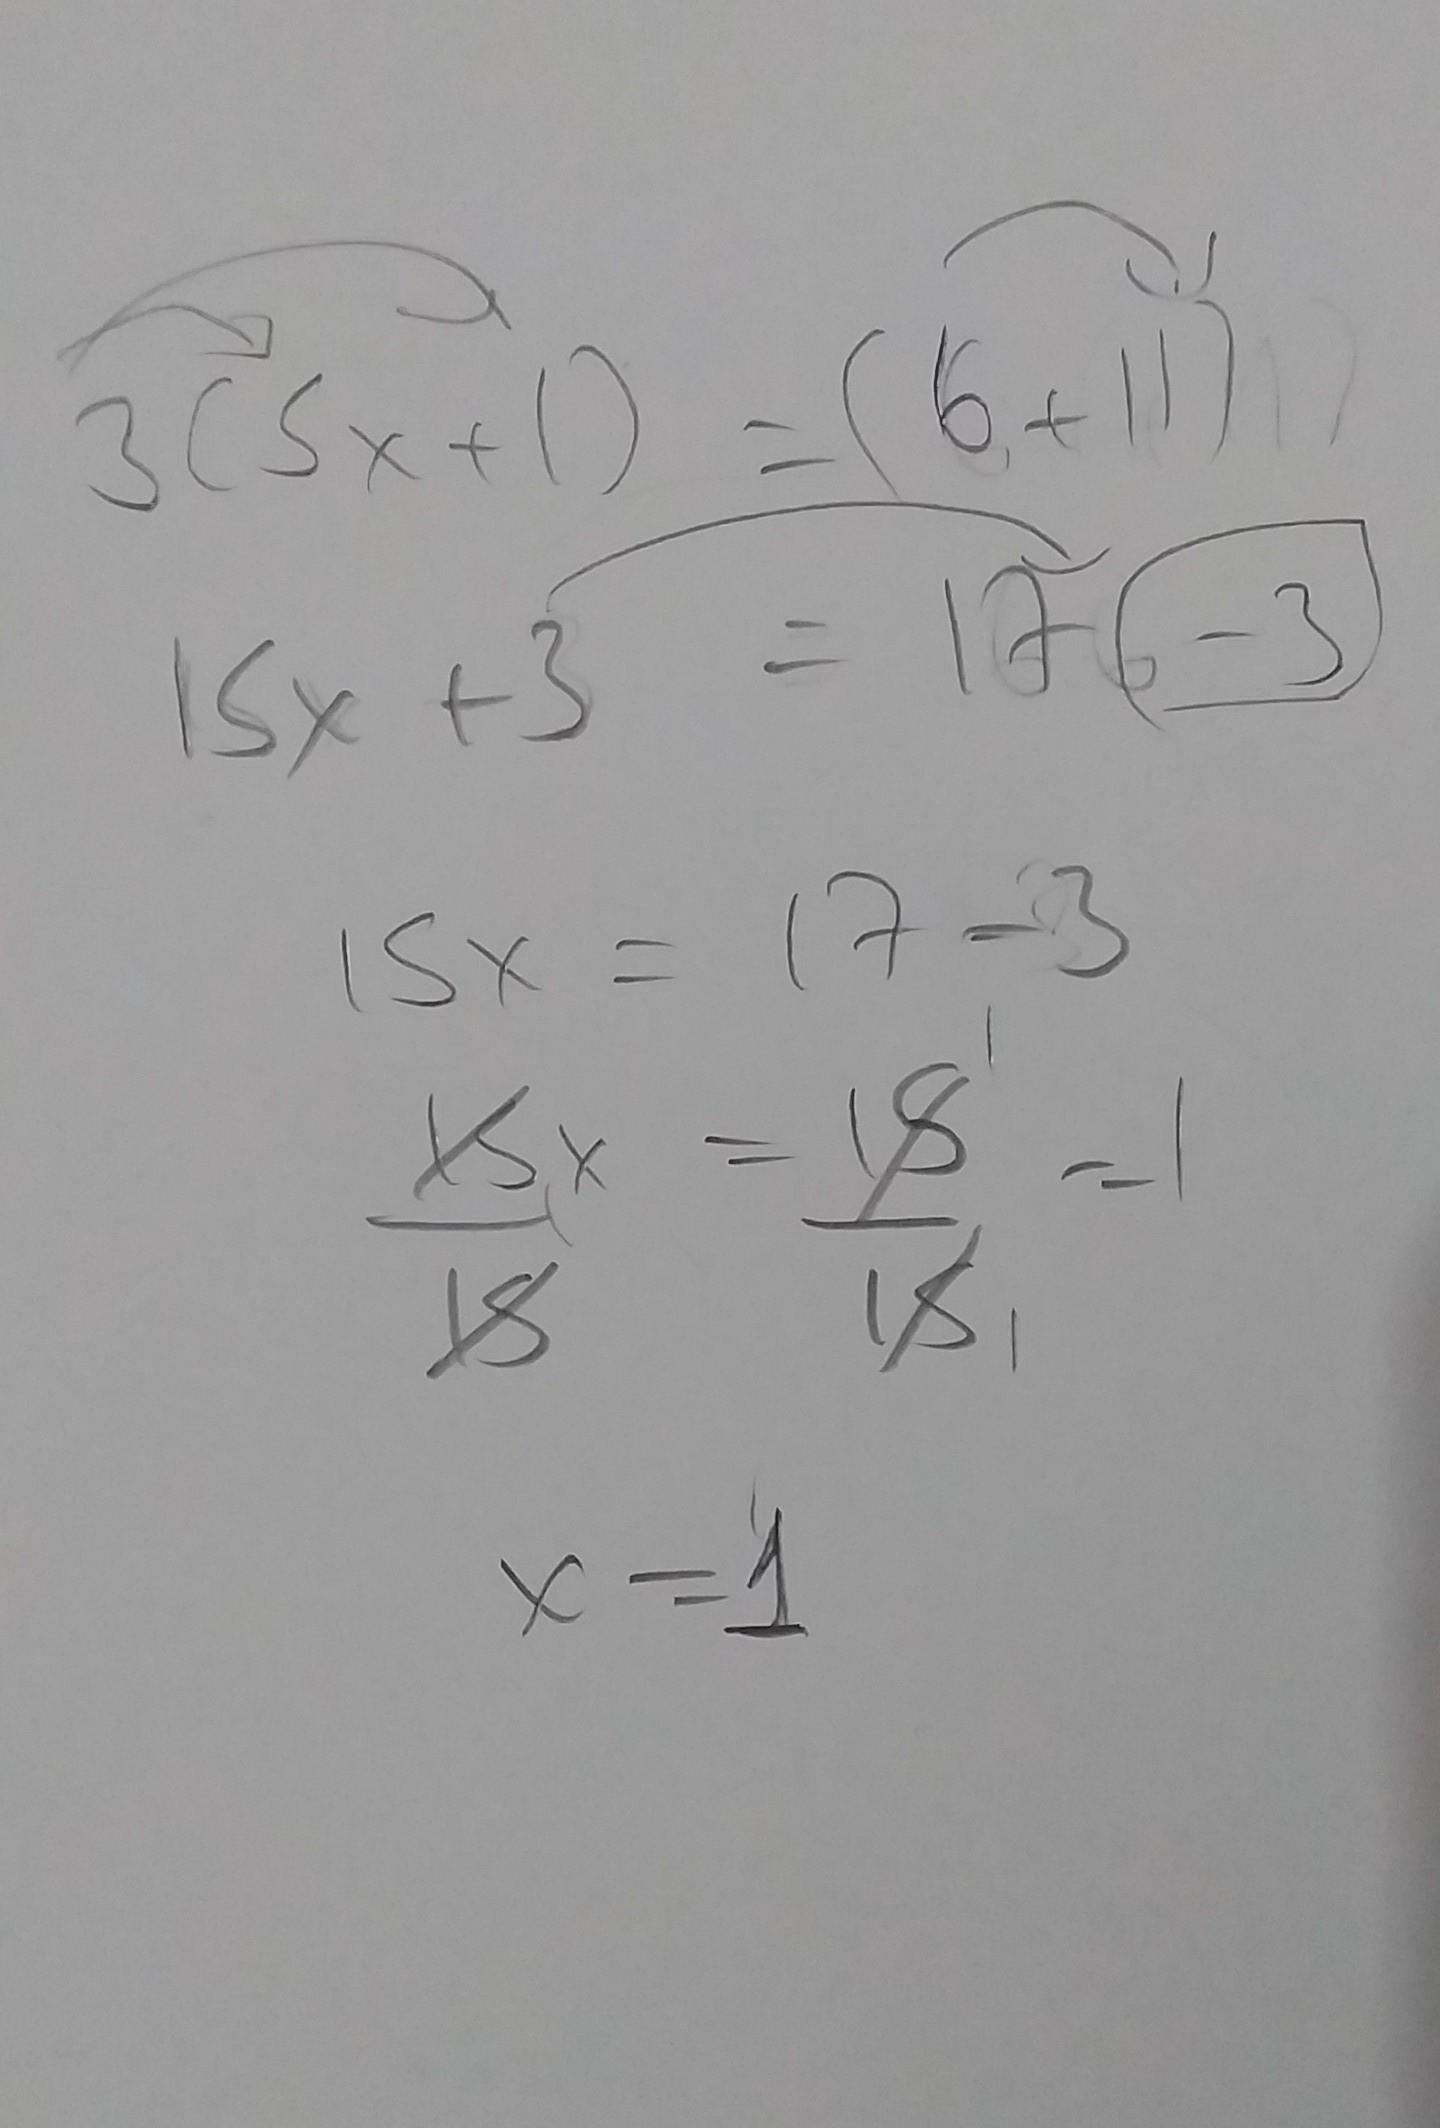 3(5x+1) = (6+11)
15x +3 = 17 -3
15x = 17-3
15x/15 = 15/15 1 1 = 1
x = 1